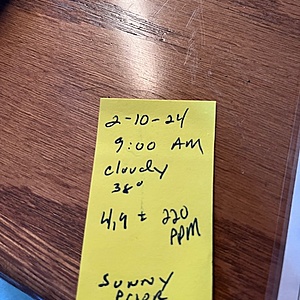 2-10-24
9:00 AM
cloudy
38°
4,9 ± 220
PPM
SUNNY
PRIOR